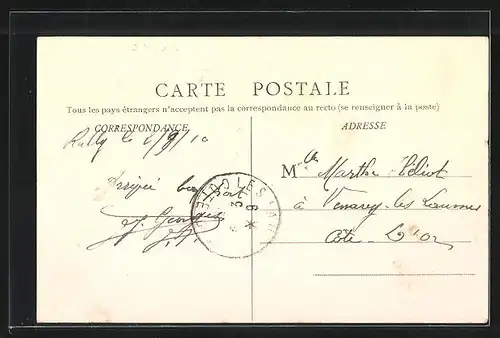 CARTE POSTALE
Tous les pays étrangers n'acceptent pas la correspondance au recto (se renseigner à la poste)
CORRESPONDANCE
ADRESSE
Rully le 8/9/10
Arrivée bon port
J. Georges
M lle Marthe Héliot
à Venarey-les Laumes
Côte-d'Or